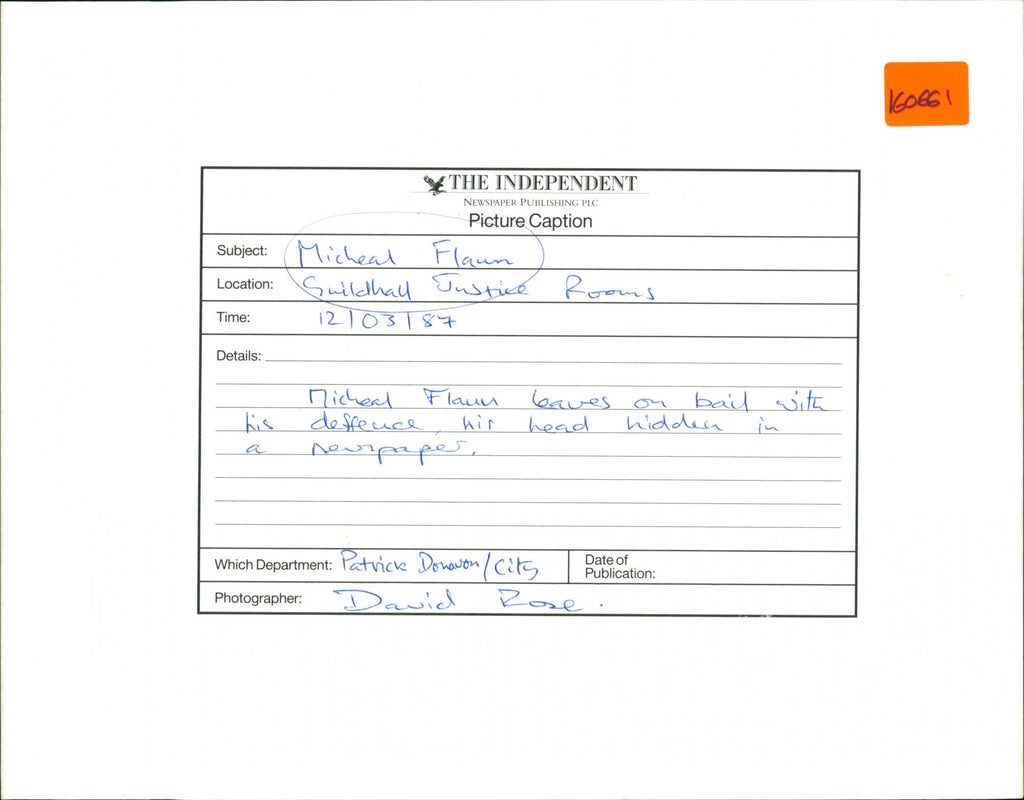 160661
THE INDEPENDENT
NEWSPAPER PUBLISHING PLC
Picture Caption
Subject: Micheal Flaun
Location: Guildhall Justice Rooms
Time: 12/03/87
Details:
Micheal Flaun leaves on bail with
his deffence, his head hidden in
a newspaper.
Which Department: Patrick Donovon/City
Date of
Publication:
Photographer: David Rose.